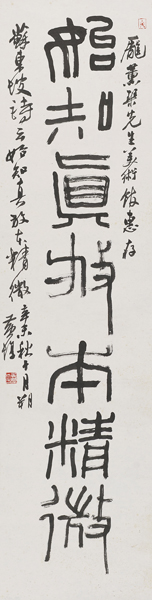 龐薰琹先生美術館惠存
始知眞放本精微
蘇東坡詩云始知真放本精微辛未秋十月朔
黃